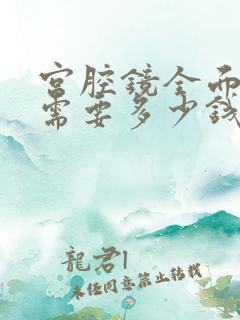 宫腔鏡全面
需要多少錢
龍君1
未经同意禁止转载